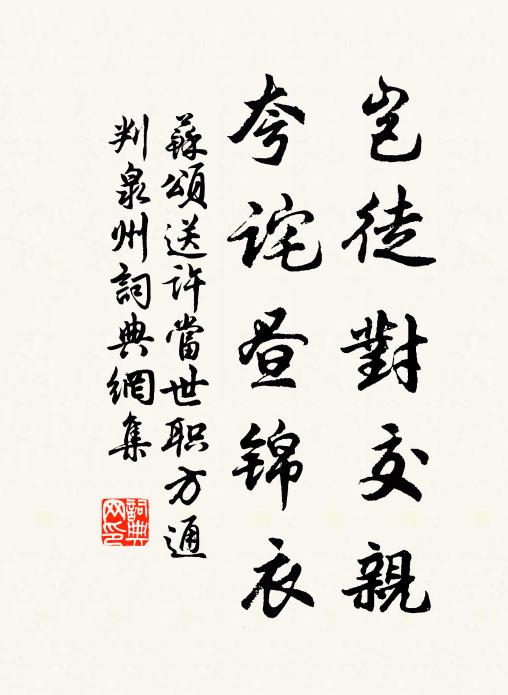 岂徒對交親
夸詫昼锦衣
蘇頌送许當世职方通
判泉州詞典網集
詞典网印